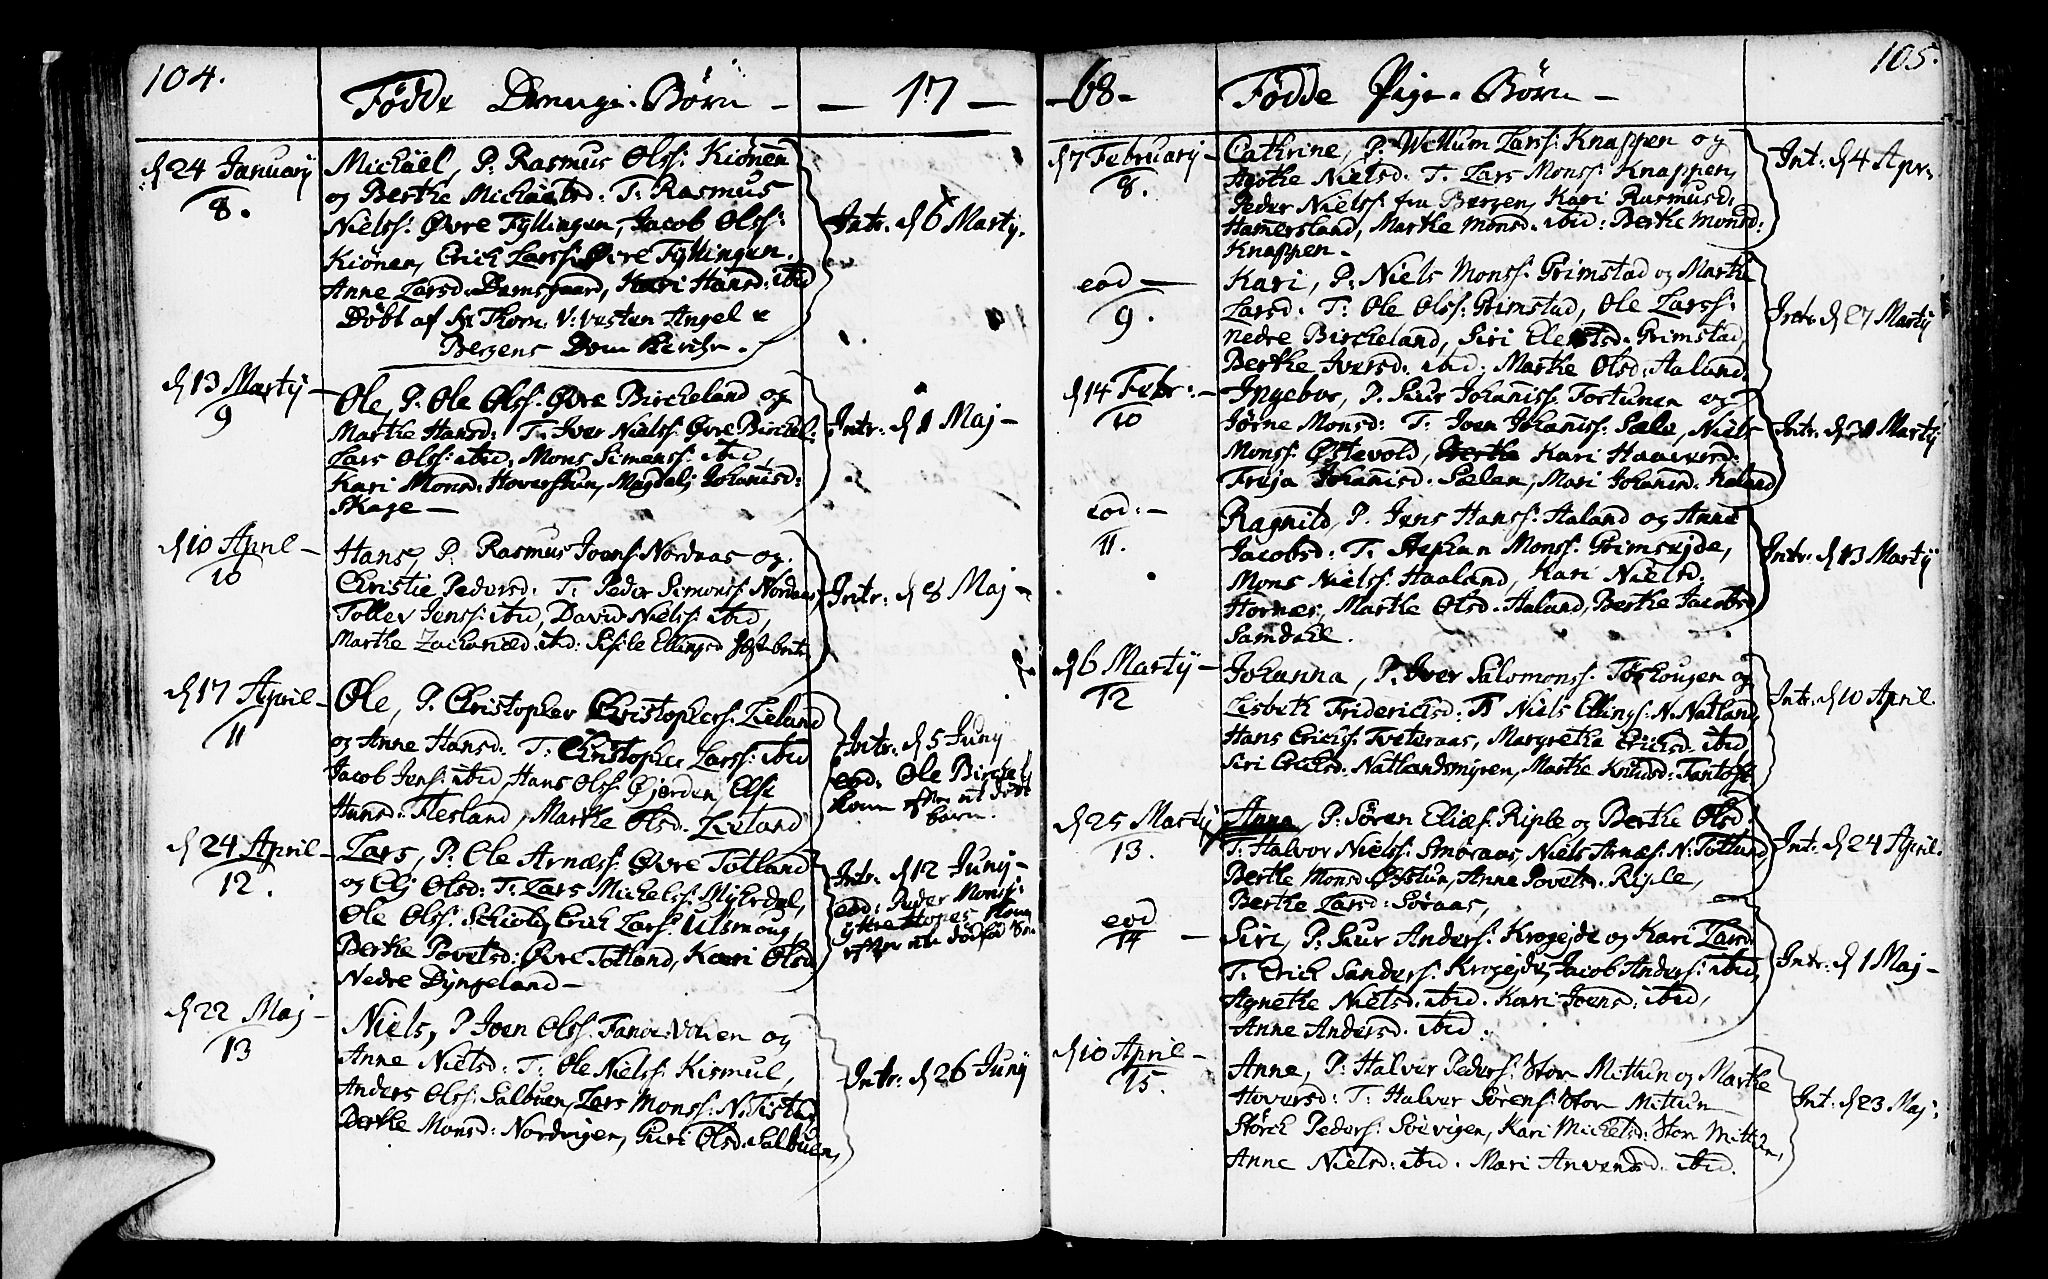 104.
Fødde Drenge-Børn — — 17 —
d 24 Januarij
8.
Michäel, P. Rasmus Olss: Kiönen
og Berthe Michäelsd: T: Rasmus
Nielss: Øvre Fyllingen, Jacob Olss:
Kiönen, Erich Larss: Øvre Fyllingen.
Anne Larsd. Damsgaard, Kari Hansd: ibid
Döbt af Hr Thorn. V: Angel i
Bergens Dom Kirche.
Intr. d 6 Martij.
d 13 Martij —
9
Ole, P. Ole Olss: Øvre Bircheland og
Marthe Hansd: T: Iver Nielss: Øvre Birchel:
Lars Olss: ibid, Mons Simenss: ibid,
Kari Monsd: Hoverstun, Magdeli Johanisd:
Skage —
Intr: d 1 Maj —
d 10 April —
10
Hans, P. Rasmus Joens: Nordaas og
Christie Pedersd: T: Peder Simonss: Nordaas,
Tollev Jenss: ibid, David Nielss: ibid,
Marthe Zachariæd. ibid: Sisile Ellingsd
Intr: d 8 Maj —
d 17 April —
11
Ole, P. Christopher Christophers: Lieland
og Anne Hansd: T: Christopher Larss: ibid
Jacob Jens: ibid, Hans Olss: Øjorden, Else
Hansd: Flesland, Marthe Olsd. Lieland
Intr: d 5 Junij
eod: Ole Birchel:
Kone efter et död
barn.
d 24 April —
12.
Lars, P: Ole Arnæss: Øvre Totland
og Elj Olsd: T: Lars Michelss: Myhrdal,
Ole Olss: Schiold, Erich Larss: Ulsmoug,
Berthe Povelsd: Øvre Totland, Kari Olsd
Nedre Dyngeland —
Intr: d 12 Junij —
eod: Peder Monss:
ytre Kone
efter en dödfød Sön
d 22 Maj —
13
Niels, P. Joen Olss: og
Anne Nielsd: T: Ole Nielss: Kismul,
Anders Olss: Salbuen, Lars Monss: N. Tistad
Berthe Monsd: Nordvigen, Guri Olsd. Salbuen,
Intr: d 26 Junij
105.
— 68 — Fødde Pige-Børn —
d 7 Februarij —
8.
Cathrine, P: Willum Larss: Knappen og
Nielsd: T: Lars Monss: Knappen,
Peder Nielss: fra Bergen, Kari Rasmusd:
Hamersland, Marthe Monsd. ibid: Berthe Monsd:
Knappen —
Int: d 4 Apr:
eod —
9.
Kari, P: Niels Monss: Grimstad og Marthe
Larsd. T: Ole Olss: Grimstad, Ole Larss:
Nedre Bircheland, Siri Grimstad,
Berthe Iversd: ibid. Marthe Olsd: Haland.
Intr: d 27 Martij
d 14 Febr: —
10
Ingebor, P. Siur Johaniss: Fortunen og
Jørne Monsd: T: Joen Johaniss: Sæle, Niels
Monss: Østevold, Berthe Kari Haaversd:
Johanisd. Sælen, Mari Johanisd. Haland
Intr: d Martij
eod: —
11.
Ragnild, P. Jens Hanss: Haland og Anne
Jacobsd: T: Stephan Monss: Grimsejde,
Mons Nielss: Haaland, Kari Nielsd:
Hornæs, Marthe Olsd. Haland, Berthe Jacobsd
Samdahl.
Intr. d 13 Martij
d 6 Martij —
12
Johanna, P. Iver Salomonss: og
Lisbeth Friderichsd: T: Niels Ellings: N. Natland,
Hans Erichs: Tveteraas, Margrethe Erichsd. ibid
Siri Erichsd. Natlandsmyren, Marthe Knudsd: Fantoft
Intr: d 10 April.
d 25 Martij
13.
Anna, P: Sören Eliæs: Riple og Berthe Olsd.
T: Halvor Nielss: Smøraas, Niels Arnæs: N: Totland
Berthe Monsd: Anne Povelsd. Riple,
Berthe Larsd: Søraas,
Int: d 24 April.
eod —
14
Siri, P: Siur Anderss: Krogejde og Kari Larsd.
T: Erich Sanders: Krogejde, Jacob Anderss: ibid,
Agnethe Nielsd. ibid. Kari Joensd: ibid,
Anne Andersd. ibid.
Intr: d 1 Maj —
d 10 April —
15.
Anne, P: Halver Peders: Stor Mittun og Marthe
Hoversd: T: Halver Sörens: Stor Mittun
Störch Peders: Söevigen, Kari Michelsd: Stor Mittun,
Anne Nielsd: ibid. Mari ibid.
Int: d 23 Maj: